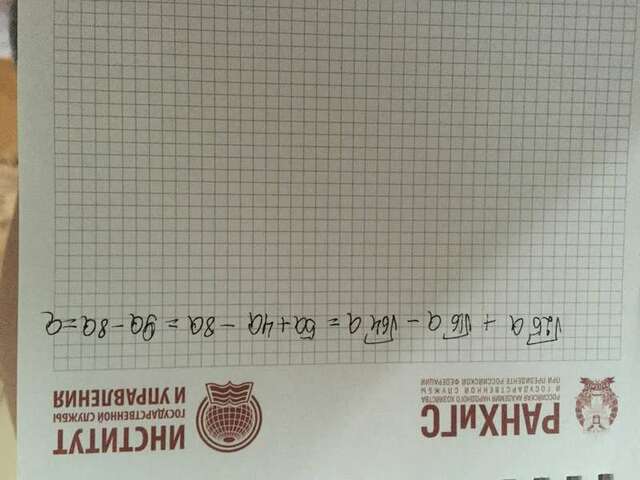 РАНХиГС
РОССИЙСКАЯ АКАДЕМИЯ НАРОДНОГО ХОЗЯЙСТВА
И ГОСУДАРСТВЕННОЙ СЛУЖБЫ
ПРИ ПРЕЗИДЕНТЕ РОССИЙСКОЙ ФЕДЕРАЦИИ
ИНСТИТУТ
ГОСУДАРСТВЕННОЙ СЛУЖБЫ
И УПРАВЛЕНИЯ
√25 a + √16 a - √64 a = 5a + 4a - 8a = 9a - 8a = a